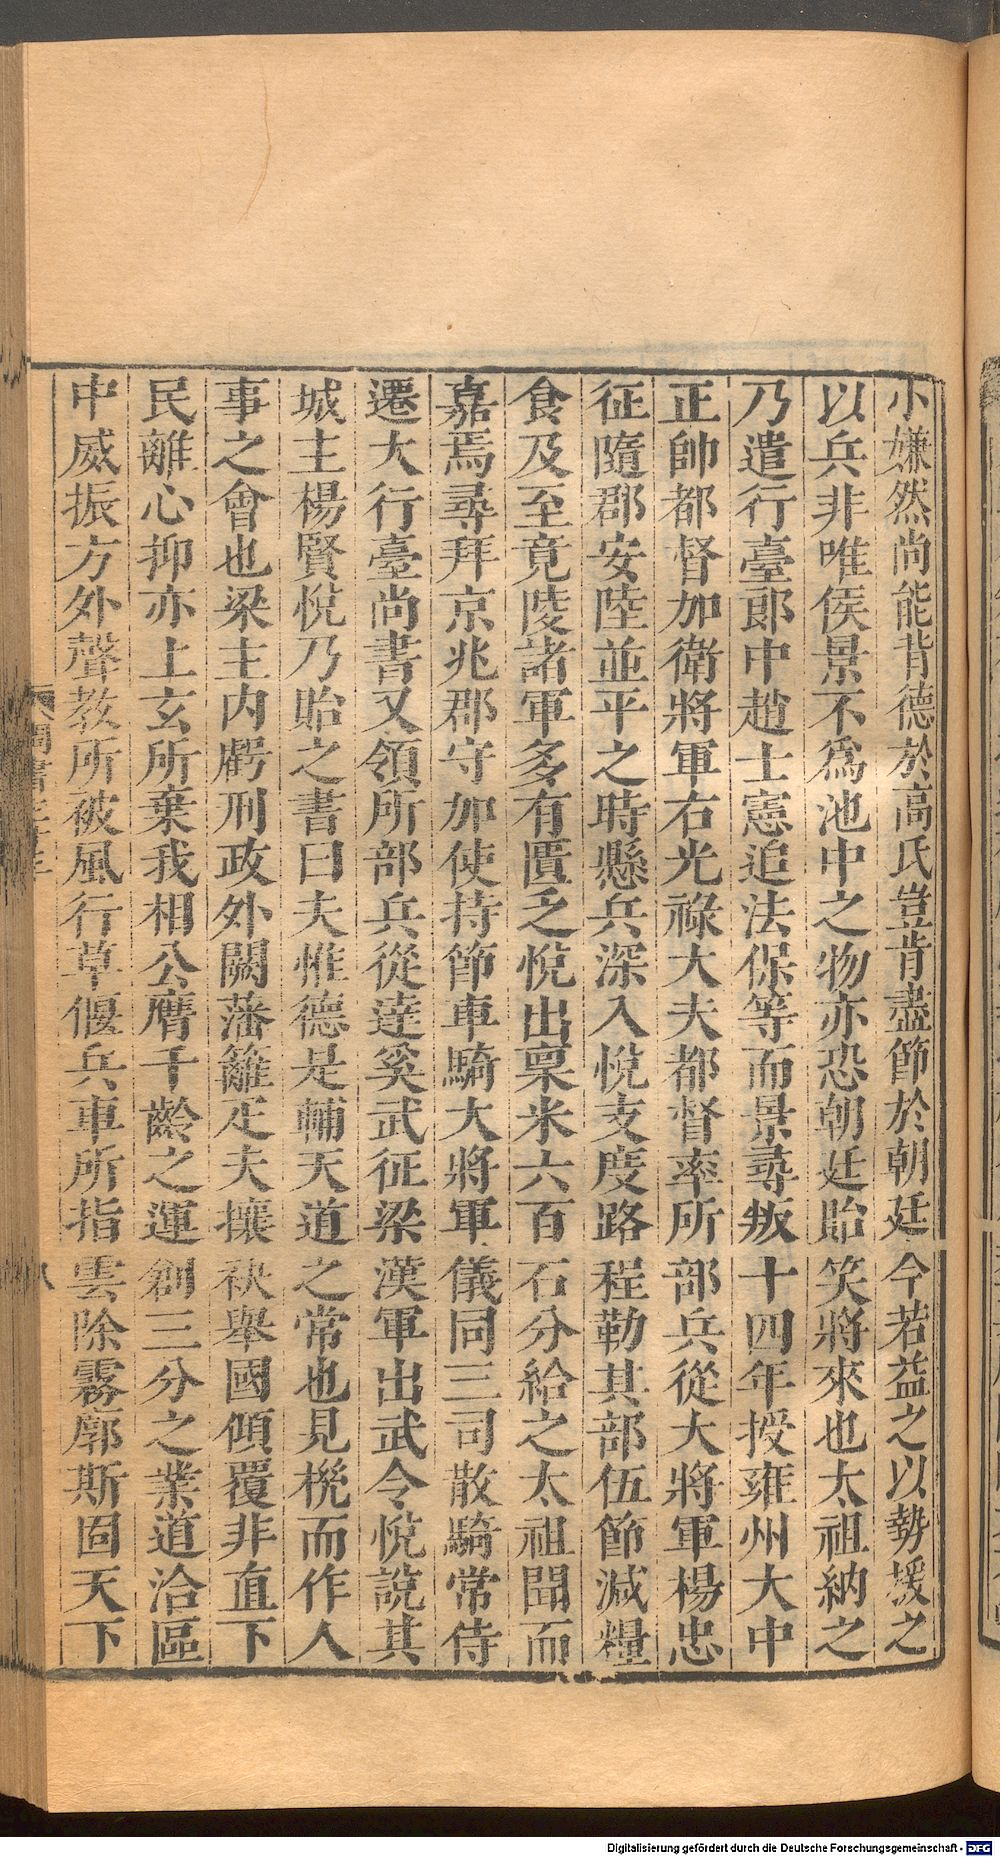 小嫌然尚能背德於高氏豈肯盡節於朝廷今若益之以勢援之
以兵非唯侯景不爲池中之物亦恐朝廷貽笑將來也太祖納之
乃遣行臺郎中趙士憲追法保等而景尋叛十四年授雍州大中
正帥都督加衛將軍右光祿大夫都督率所部兵從大將軍楊忠
征隨郡安陸並平之時懸兵深入悅支度路程勒其部伍節減糧
食及至竟陵諸軍多有匱乏悅出稟米六百石分給之太祖聞而
嘉焉尋拜京兆郡守加使持節車騎大將軍儀同三司散騎常侍
遷大行臺尚書又領所部兵從達奚武征梁漢軍出武令悅說其
城主楊賢悅乃貽之書曰夫惟德是輔天道之常也見機而作人
事之會也梁主內虧刑政外闕藩籬疋夫攘袂舉國傾覆非直下
民離心抑亦上玄所棄我相公膺千齡之運創三分之業道洽區
中威振方外聲教所被風行草偃兵車所指雲除霧廓斯固天下
周書
八
Digitalisierung gefördert durch die Deutsche Forschungsgemeinschaft - DFG